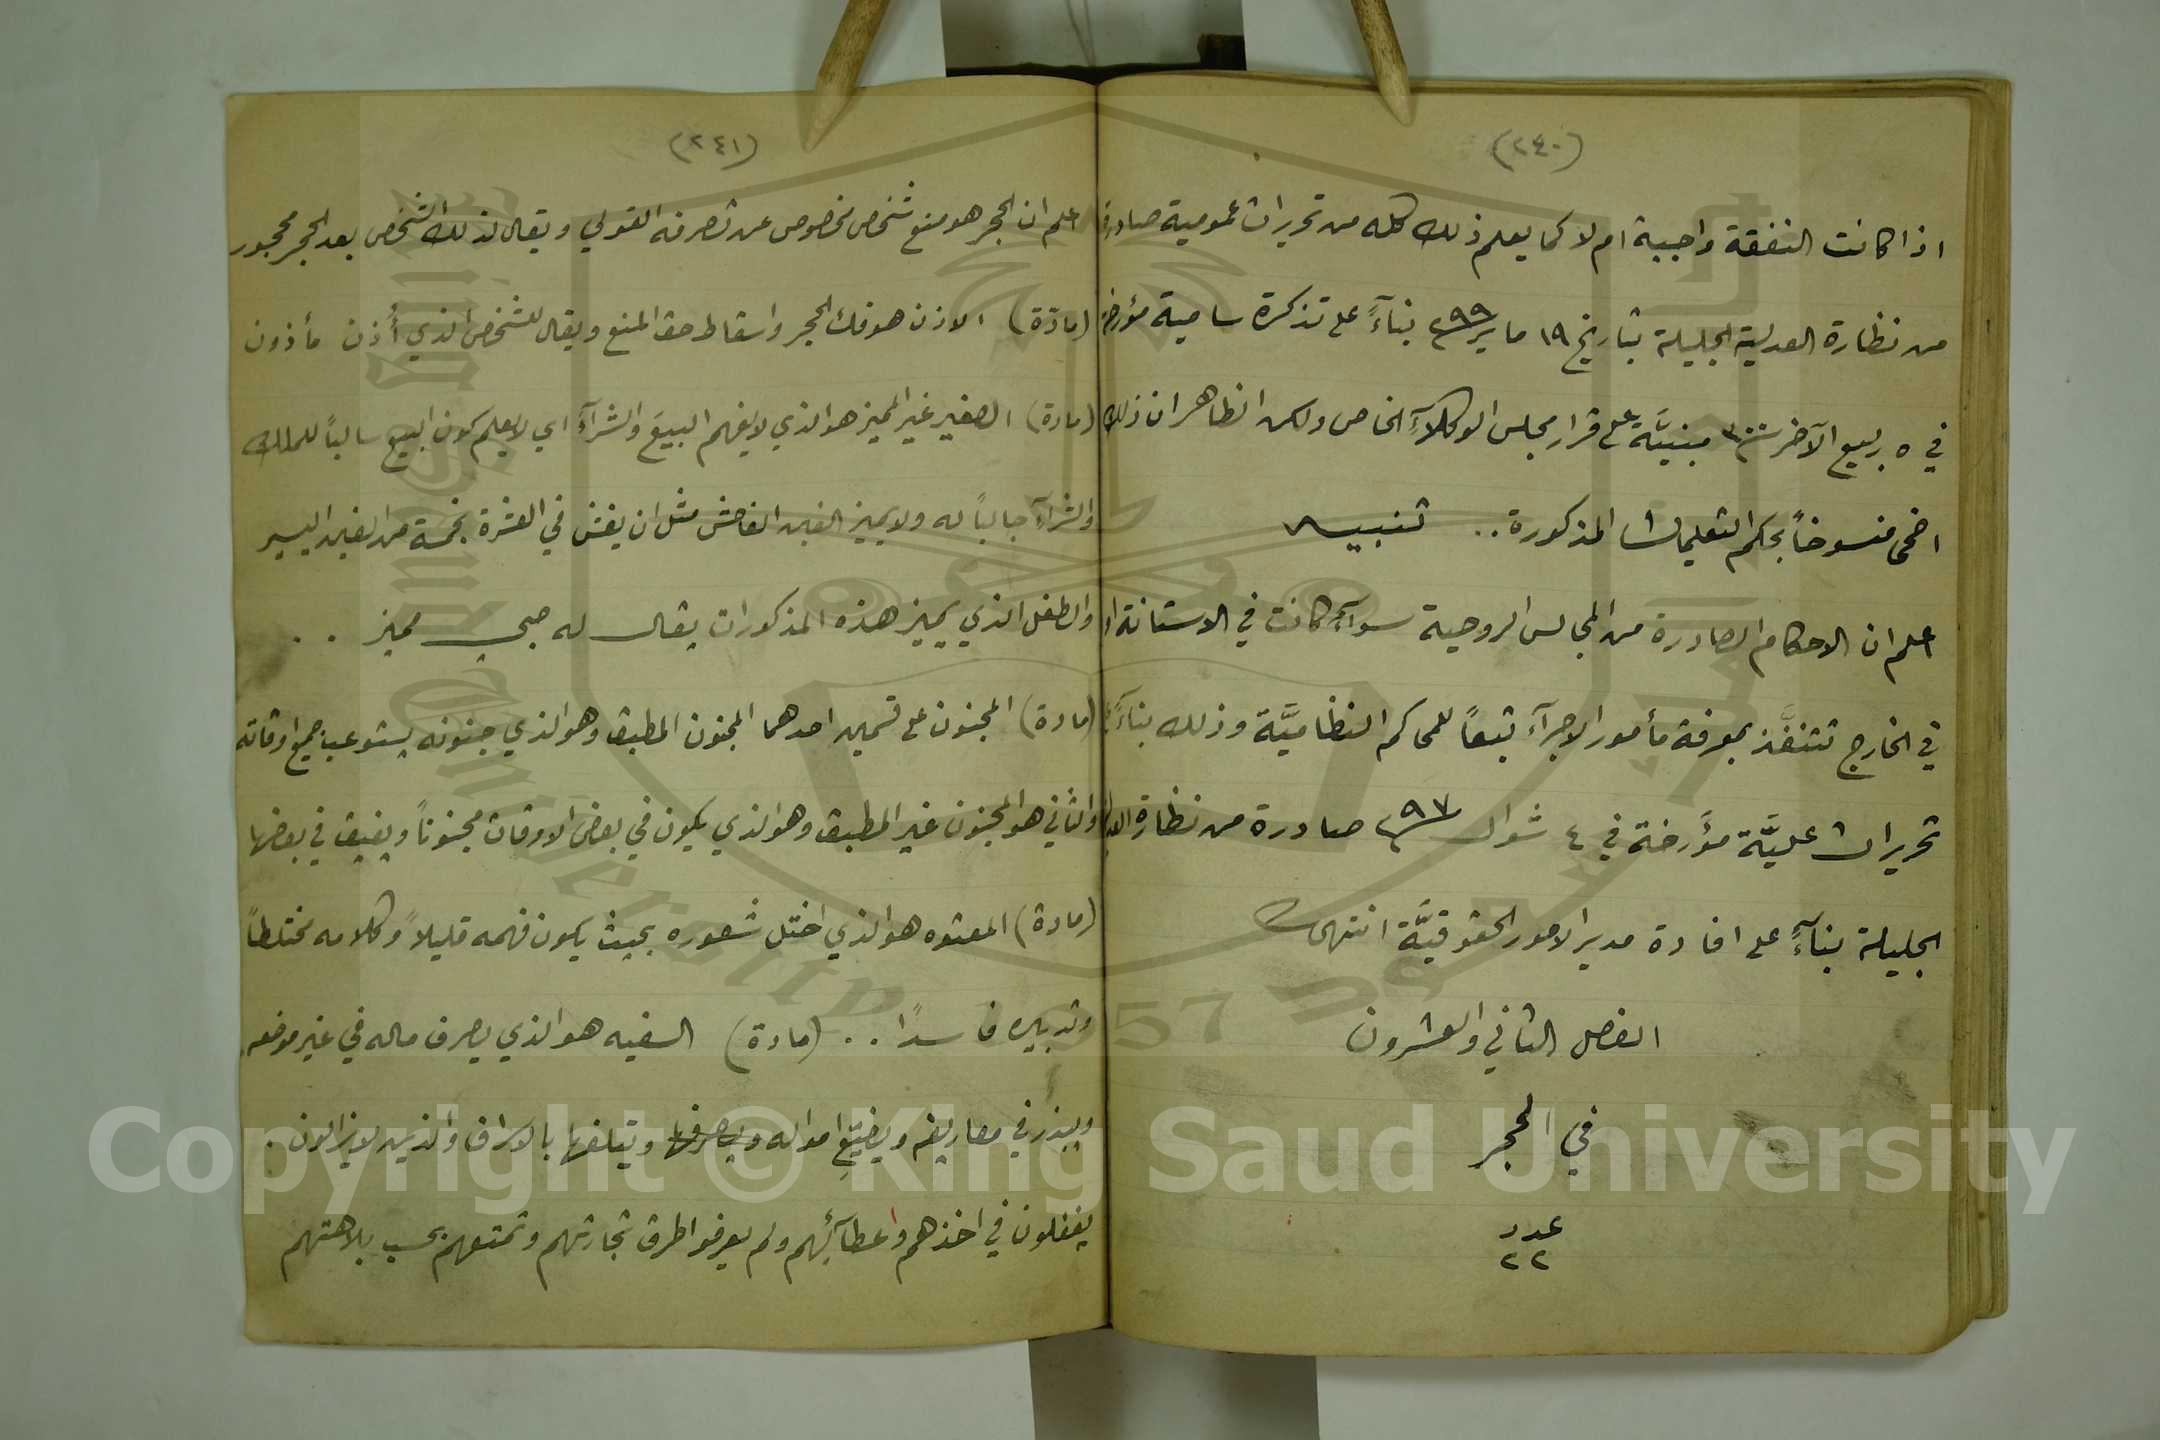 (٢٤٠)
اذا كانت النفقة واجبة ام لا كما يعلم ذلك كله من تحريرات عمومية صادرة
من نظارة العدلية الجليلة بتاريخ ١٩ مايس ٢٩٩ بناءً على تذكرة سامية مؤرخة
في ٥ ربيع الآخر ٣٠٠ مبنيَّة على قرار مجلس الوكلآءِ الخاص ولكن الظاهر ان ذلك
اضحى منسوخاً بحكم التعليمات المذكورة.. تنبيه
اعلم ان الاحكام الصادرة من المجالس الروحية سوآءٌ كانت في الاستانة او
في الخارج تتنفَّذ بمعرفة مأمور الاجرآء تبعاً للمحاكم النظاميَّة وذلك بناءً
تحريرات عليَّة مؤَرخة في ٤ شوال ٢٩٧ صادرة من نظارة العدلية
الجليلة بنآءً على افادة مدير الامور الحقوقيَّة انتهى
الفصل الثاني والعشرون
في الحجر
عدد
٢٢
(٢٤١)
اعلم ان الحجر هو منع شخص مخصوص عن تصرفه القولي ويقال لذلك الشخص بعد الحجر محجور
(مادة) الاذن هو فك الحجر واسقاط حق المنع ويقال للشخص الذي أُذن مأذون
(مادة) الصغير غير المميز هو الذي لا يفهم البيعَ والشرآءَ اي لا يعلم كون البيع سالباً للملك
والشرآءِ جالباً له ولا يميز الغبن الفاحش مثل ان يغش في العشرة بخمسة من الغبن اليسير
والطفل الذي يميز هذه المذكورات يقال له صبي مميز ..
(مادة) المجنون على قسمين احدهما المجنون المطبق وهو الذي جنونه يستوعب جميع اوقاته
والثاني هو المجنون غير المطبق وهو الذي يكون في بعض الاوقات مجنوناً ويفيق في بعضها
(مادة) المعتوه هو الذي اختل شعوره بحيث يكون فهمه قليلاً وكلامه مختلطاً
وتدبيره فاسدًا .. (مادة) السفيه هو الذي يصرف ماله في غير موضعه
ويبذر في مصاريفه ويضيّع امواله ويصرفها ويتلفها بالاسراف والذين لا يزالون .
يغفلون في اخذهم واعطآئهم ولم يعرفوا طرق تجارتهم وتمتعهم بحسب بلاهتهم
Copyright © King Saud University
King Saud University
1957